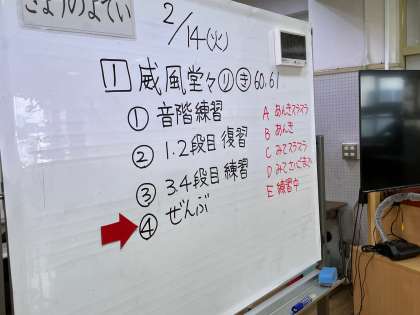 きょうのよてい
2/14(火)
1 威風堂々 り き 60,61
① 音階練習
② 1.2段目 復習
③ 3.4段目 練習
④ ぜんぶ
A あんきスラスラ
B あんき
C みてスラスラ
D みてさいごまで
E 練習中